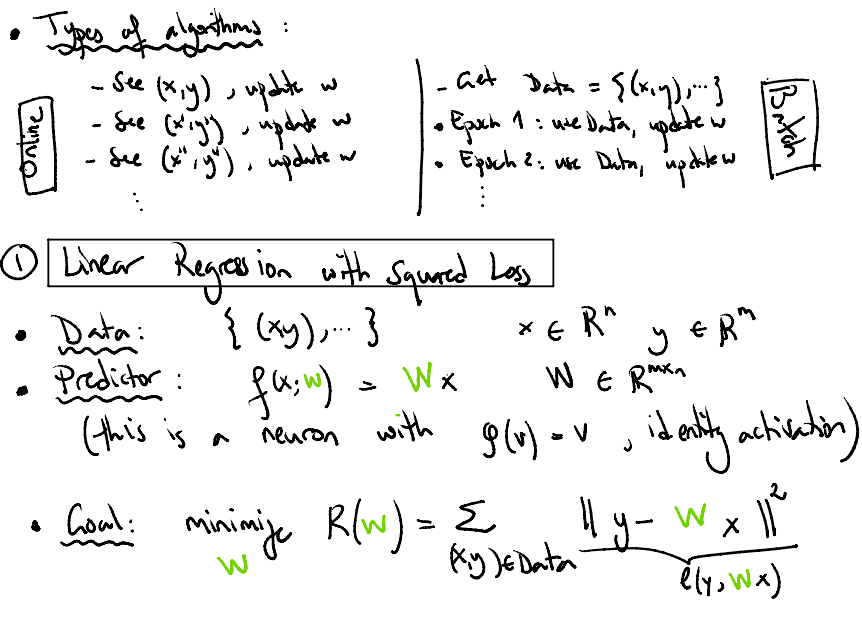 • Types of algorithms :
Online
- See (x,y) , update w
- See (x',y') , update w
- See (x'',y'') , update w
⋮
- Get Data = {(x,y),...}
• Epoch 1 : use Data, update w
• Epoch 2 : use Data, update w
⋮
Batch
① Linear Regression with Squared Loss
• Data: { (x,y), ... } x ∈ ℝⁿ y ∈ ℝᵐ
• Predictor : f(x;W) = Wx W ∈ ℝᵐˣⁿ
(this is a neuron with φ(v) = v , identity activation)
• Goal: minimize R(W) = Σ ‖ y - W x ‖²
W (x,y)∈Data ℓ(y, Wx)